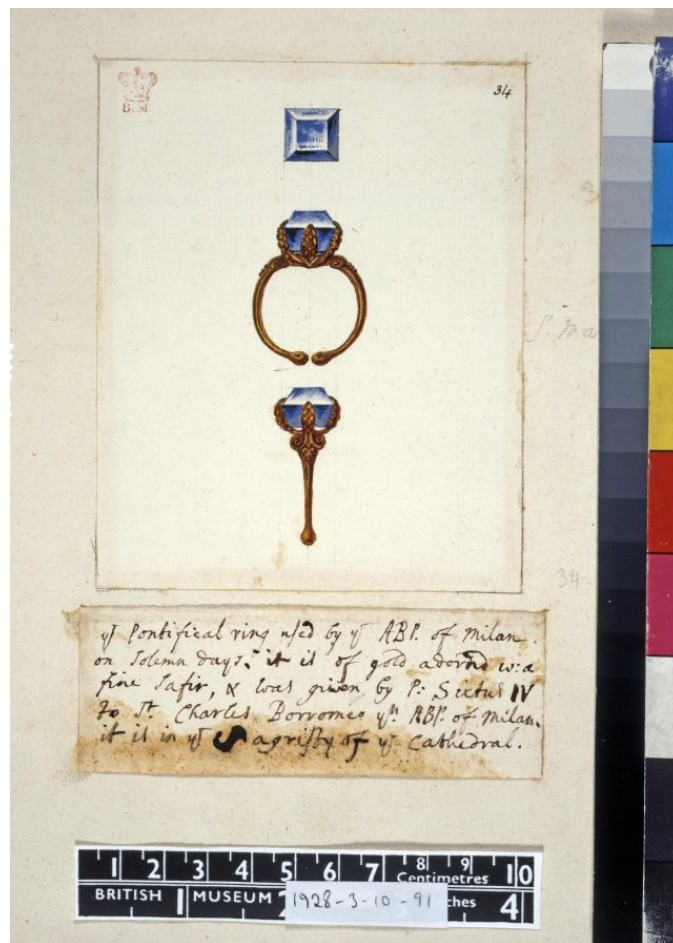 B.M.
34
S. Ma
34-
yͤ Pontifical ring used by yͤ ABP. of Milan.
on Solemn days, it is of gold adornd w: a
fine Safir, & was given by P: Sixtus IV
to Sͭ. Charles Borromeo yͫ ABP. of Milan.
it is in yͤ Sagristy of yͤ Cathedral.
1 2 3 4 5 6 7 8 9 10
Centimetres
BRITISH 1 MUSEUM 2 ches 4
1928-3-10-91